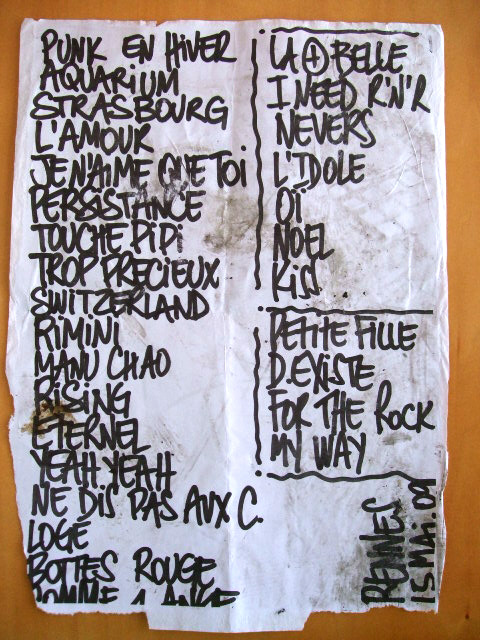 PUNK EN HIVER
AQUARIUM
STRASBOURG
L'AMOUR
JE N'AIME QUE TOI
PERSISTANCE
TOUCHE PIPI
TROP PRECIEUX
SWITZERLAND
RIMINI
MANU CHAO
RISING
ETERNEL
YEAH YEAH
NE DIS PAS AUX C.
LOGÉ
BOTTES ROUGE
COMME 1 ANGE
LA + BELLE
I NEED R'N'R
NEVERS
L'IDOLE
OÏ
NOEL
KISS
PETITE FILLE
D.EXISTE
FOR THE ROCK
MY WAY
RENNES
15.MAI.09